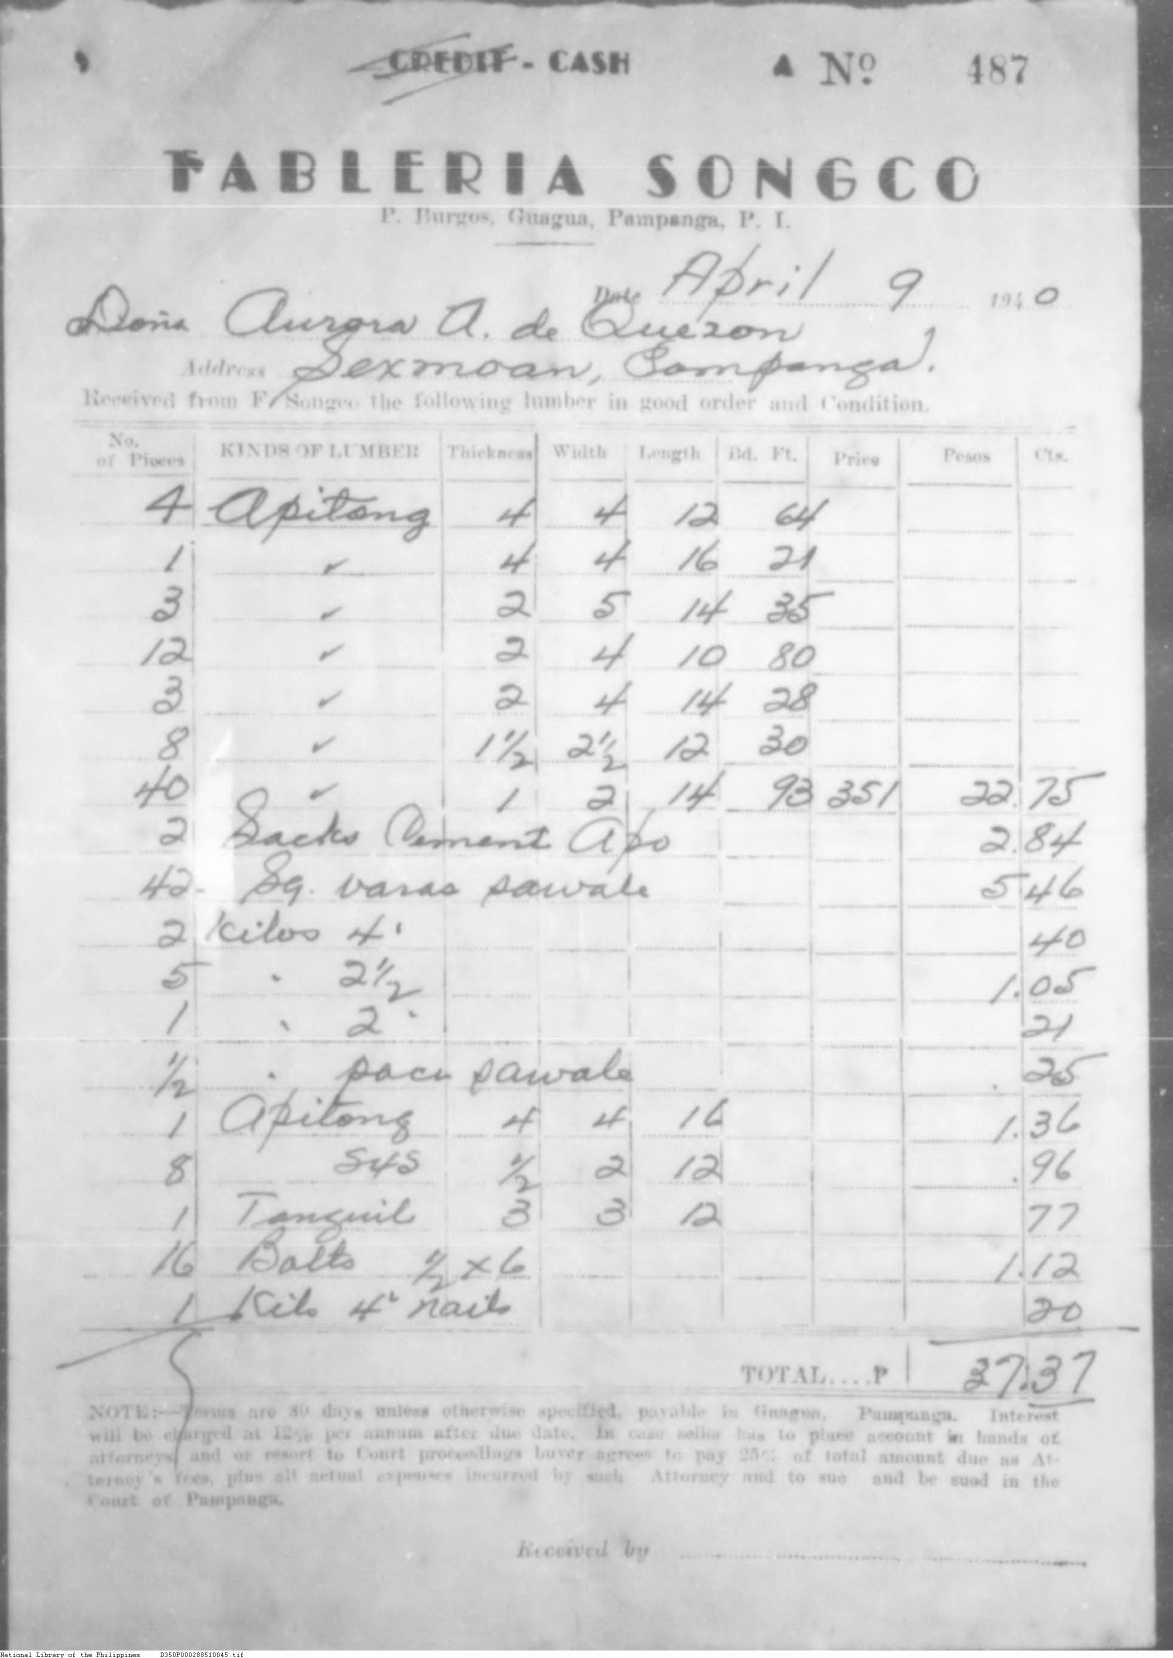 CREDIT - CASH
Nº 487
TABLERIA SONGCO
P. Burgos, Guagua, Pampanga, P. I.
Date April 9 1940
Doña Aurora A. de Quezon
Address Sexmoan, Pampanga.
Received from F. Songco the following lumber in good order and Condition.
No. of Pieces KINDS OF LUMBER Thickness Width Length Bd. Ft. Price Pesos Cts.
4 Apitong 4 4 12 64
1 " 4 4 16 21
3 " 2 5 14 35
12 " 2 4 10 80
3 " 2 4 14 28
8 " 1 1/2 2 1/2 12 30
40 " 1 2 14 93 351 22.75
2 Sacks Cement Apo 2.84
42 Sq. varas sawale 5 46
2 Kilos 4" 40
5 " 2 1/2 1.05
1 " 2" 21
1/2 " sawale 25
1 Apitong 4 4 16 1.36
8 S4S 1/2 2 12 .96
1 Tanguil 3 3 12 77
16 Bolts 1/2 x 6 1.12
1 Kilo 4" nails 20
TOTAL....P 37.37
NOTE:—Terms are 30 days unless otherwise specified, payable in Guagua, Pampanga. Interest
will be charged at 12% per annum after due date. In case seller has to place account in hands of
attorneys and or resort to Court proceedings buyer agrees to pay 25% of total amount due as At-
torney's fees, plus all actual expenses incurred by such Attorney and to sue and be sued in the
Court of Pampanga.
Received by
National Library of the Philippines D350P000288510045.tif